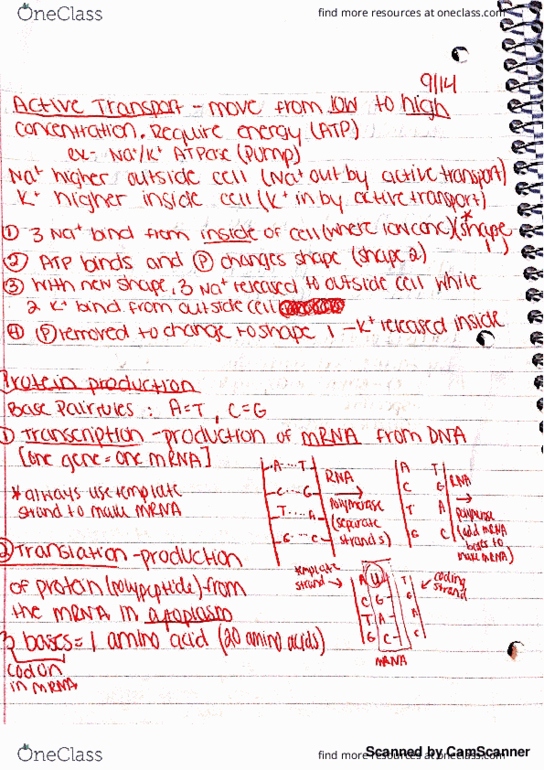 OneClass
find more resources at oneclass.com
9/14
Active Transport - move from low to high
concentration. Require energy (ATP)
ex- Na+/K+ ATPase (pump)
Na+ higher outside cell (Na+ out by active transport)
K+ higher inside cell (K+ in by active transport)
① 3 Na+ bind from inside of cell (where low conc) (shape 1)*
② ATP binds and Ⓟ changes shape (shape 2)
③ With new shape, 3 Na+ released to outside cell while
2 K+ bind from outside cell
④ Ⓟ removed to change to shape 1 - K+ released inside
Protein production
Base Pair rules: A=T, C=G
① Transcription - production of mRNA from DNA
[one gene = one mRNA]
* always use template
strand to make mRNA
A T
C G
T A
G C
RNA
polymerase
(separate
strands)
A T
C G
T A
G C
RNA
polymerase
(add mRNA
bases to
make mRNA)
② Translation - production
of protein (polypeptide) from
the mRNA in cytoplasm
3 bases = 1 amino acid (20 amino acids)
codon
in mRNA
template
strand
A U T
C G G
T A A
G C C
coding
strand
mRNA
OneClass
find more resources at oneclass.com
Scanned by CamScanner